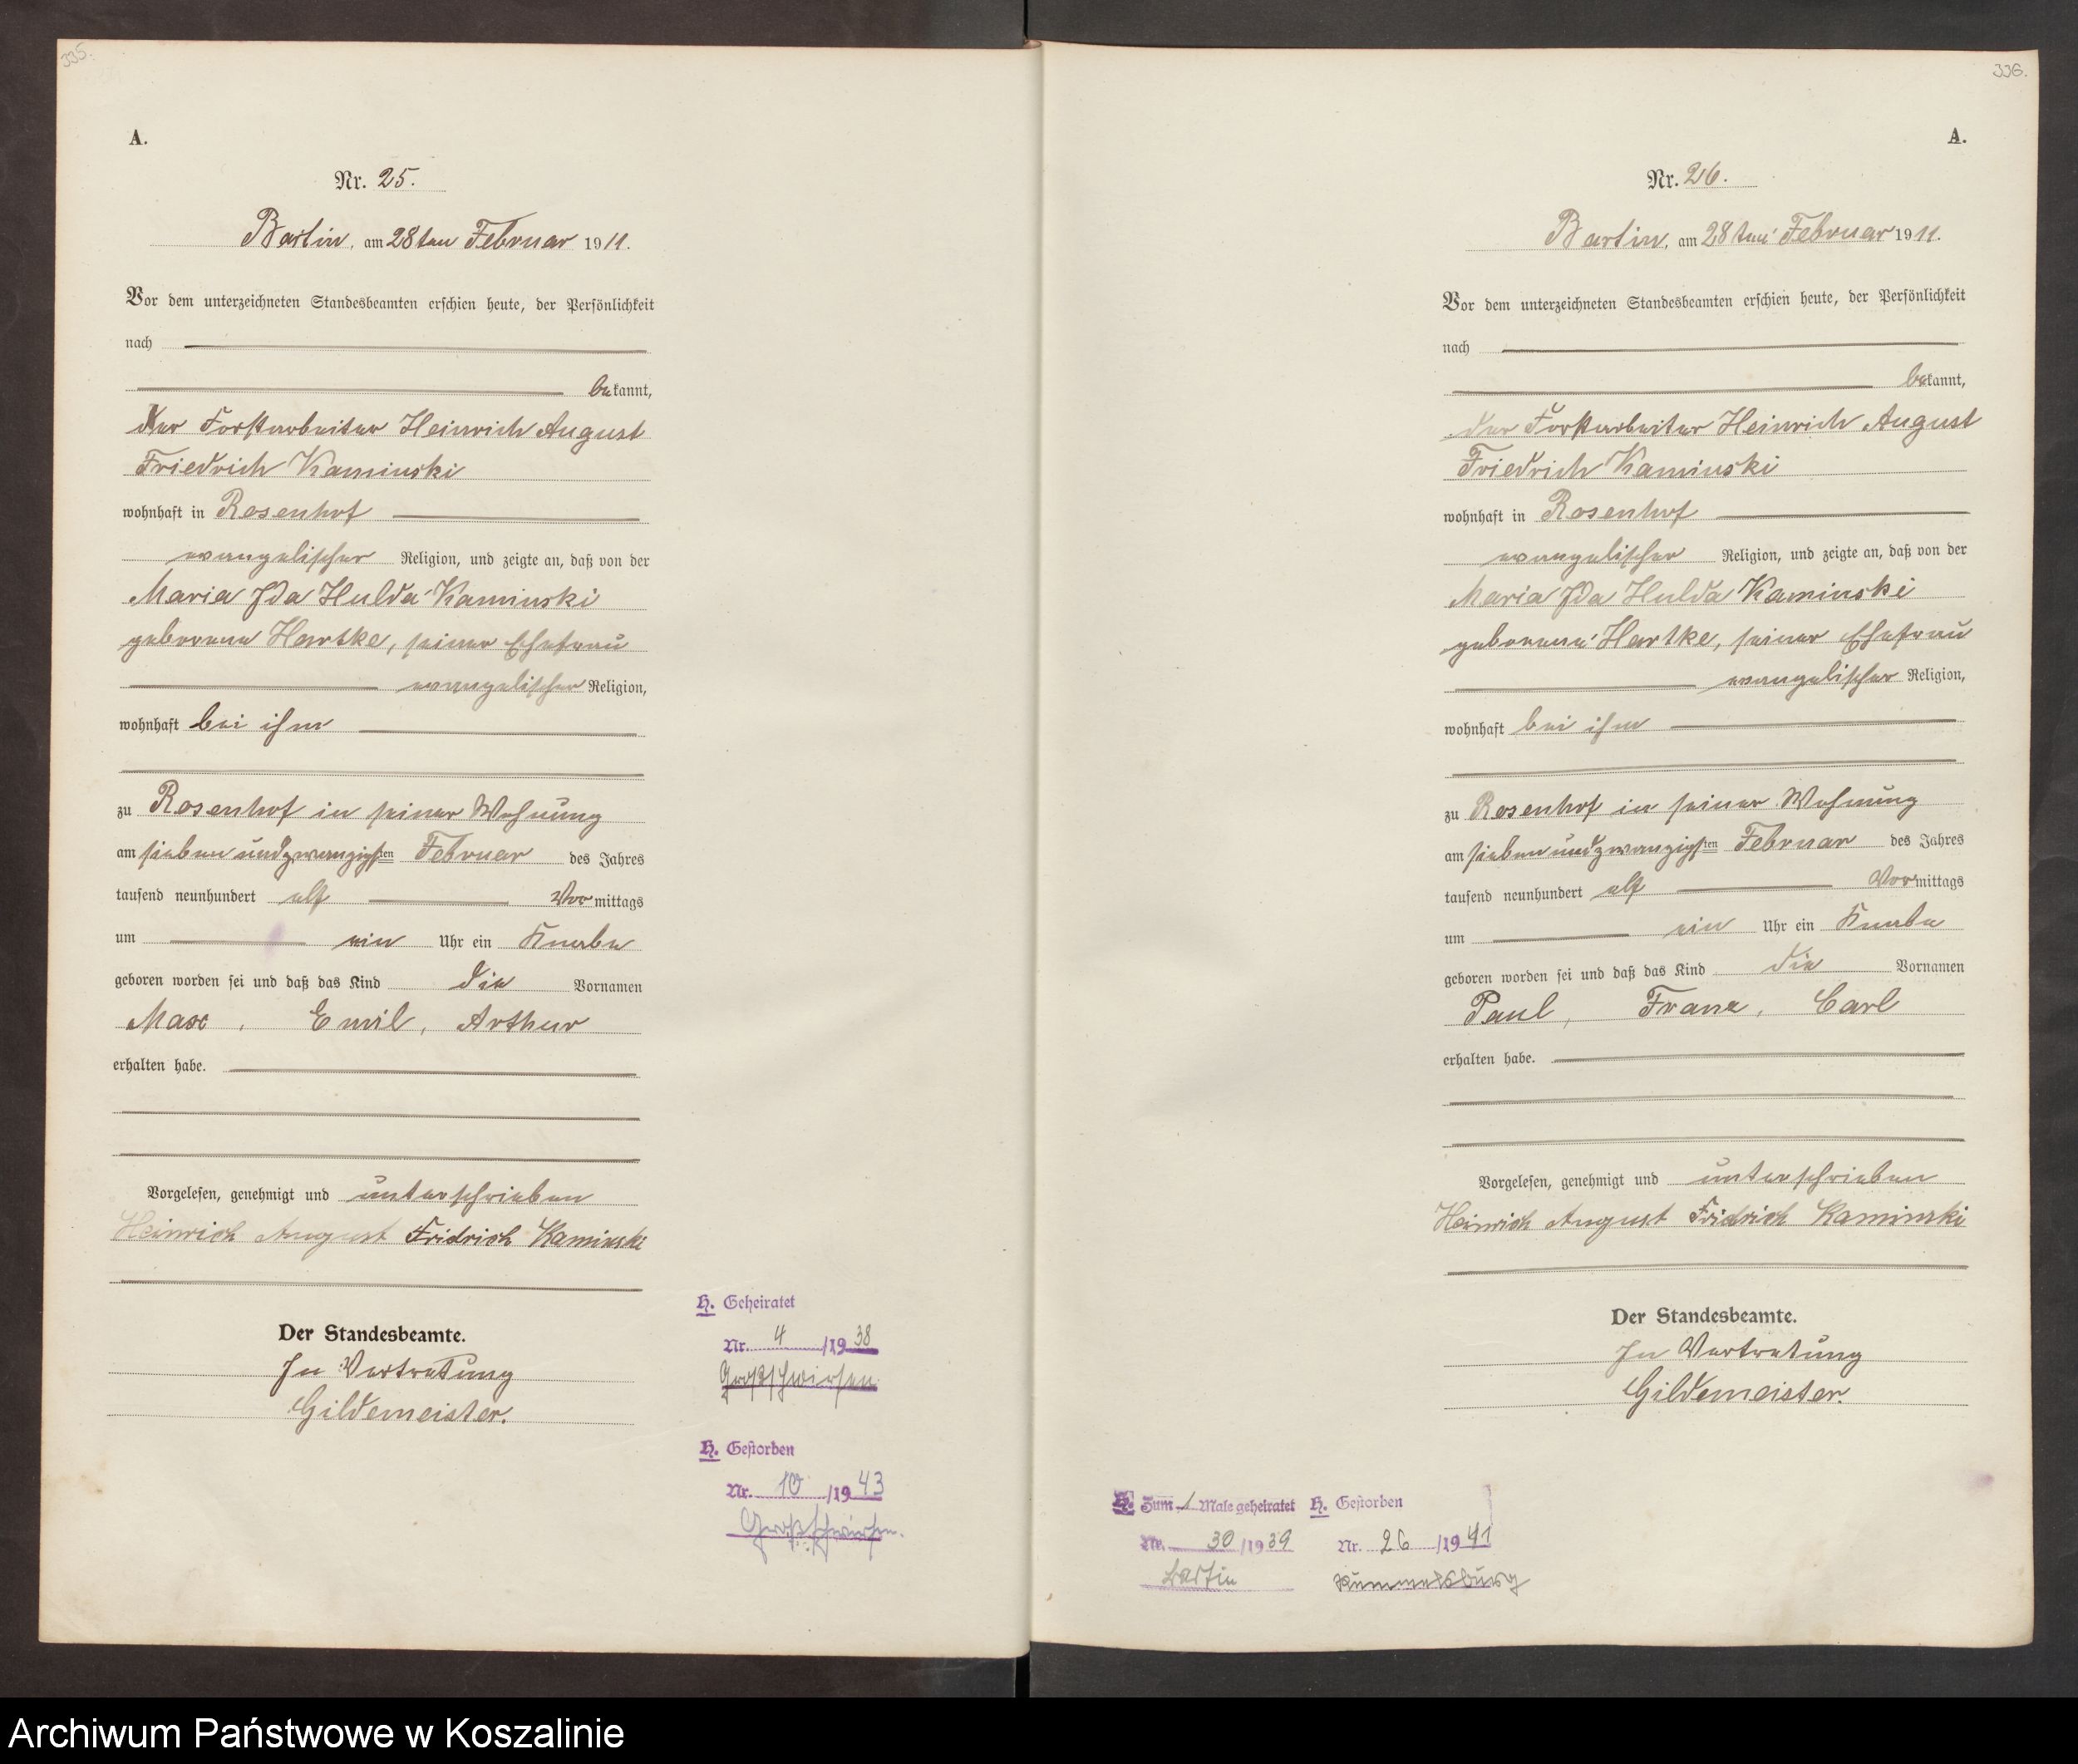 335.
A.
Nr. 25.
Bartin, am 28ten Februar 1911.
Vor dem unterzeichneten Standesbeamten erschien heute, der Persönlichkeit
nach
bekannt,
der Forstarbeiter Heinrich August
Friedrich Kaminski
wohnhaft in Rosenhof
evangelischer Religion, und zeigte an, daß von der
Maria Ida Hulda Kaminski
geborene Hartke, seiner Ehefrau
evangelischer Religion,
wohnhaft bei ihm
zu Rosenhof in seiner Wohnung
am siebenundzwanzigsten Februar des Jahres
tausend neunhundert elf Vormittags
um ein Uhr ein Knabe
geboren worden sei und daß das Kind die Vornamen
Max, Emil, Arthur
erhalten habe.
Vorgelesen, genehmigt und unterschrieben
Heinrich August Fridrich Kaminski
Der Standesbeamte.
In Vertretung
Gildemeister.
H. Geheiratet
Nr. 4 /1938
Großschwirsen
H. Gestorben
Nr. 10 /1943
Großschwirsen.
336.
A.
Nr. 26.
Bartin, am 28ten Februar 1911.
Vor dem unterzeichneten Standesbeamten erschien heute, der Persönlichkeit
nach
bekannt,
der Forstarbeiter Heinrich August
Friedrich Kaminski
wohnhaft in Rosenhof
evangelischer Religion, und zeigte an, daß von der
Maria Ida Hulda Kaminski
geborene Hartke, seiner Ehefrau
evangelischer Religion,
wohnhaft bei ihm
zu Rosenhof in seiner Wohnung
am siebenundzwanzigsten Februar des Jahres
tausend neunhundert elf Vormittags
um ein Uhr ein Knabe
geboren worden sei und daß das Kind die Vornamen
Paul, Franz, Carl
erhalten habe.
Vorgelesen, genehmigt und unterschrieben
Heinrich August Fridrich Kaminski
Der Standesbeamte.
In Vertretung
Gildemeister.
H. Zum 1 Male geheiratet
Nr. 30 /1939
Bartin
H. Gestorben
Nr. 26 /1941
Rummelsburg
Archiwum Państwowe w Koszalinie